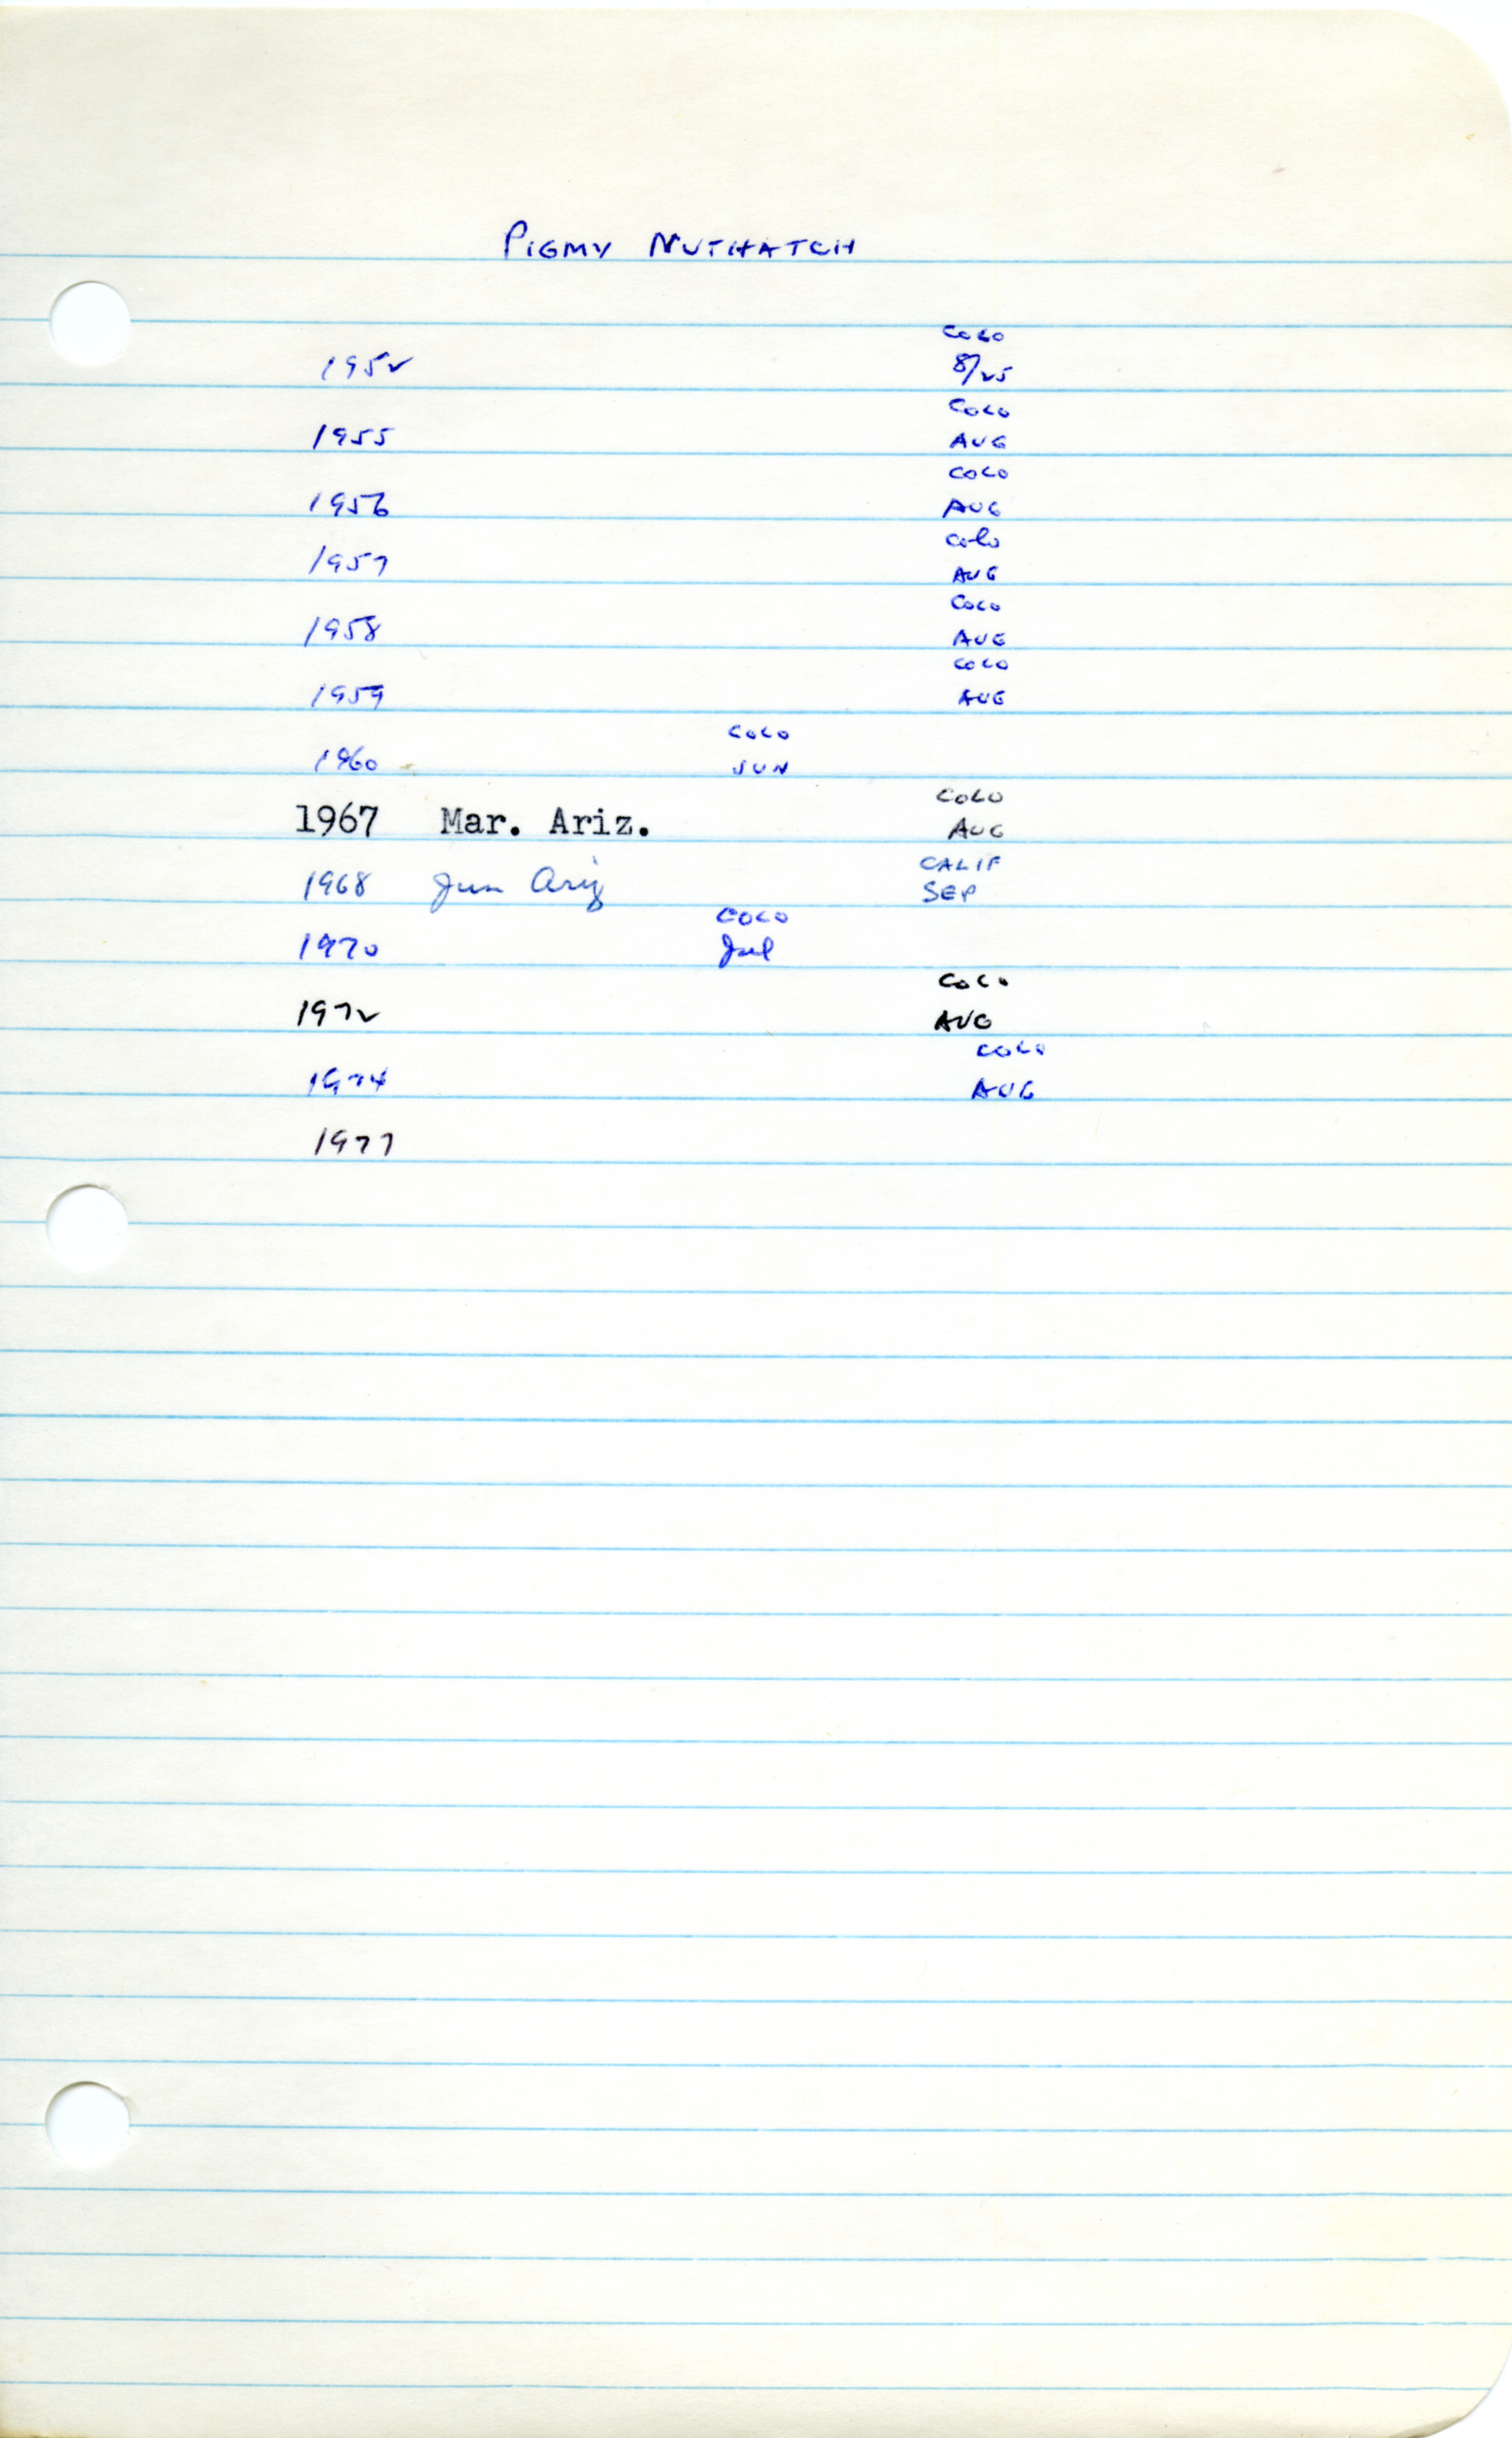 PIGMY NUTHATCH
COLO
1952 8/25
COLO
1955 AUG
COLO
1956 AUG
Colo
1957 AUG
COLO
1958 AUG
COLO
1959 AUG
COLO
1960 JUN
COLO
1967 Mar. Ariz. AUG
CALIF
1968 Jun Ariz SEP
COLO
1970 Jul
COLO
1972 AUG
COLO
1974 AUG
1977